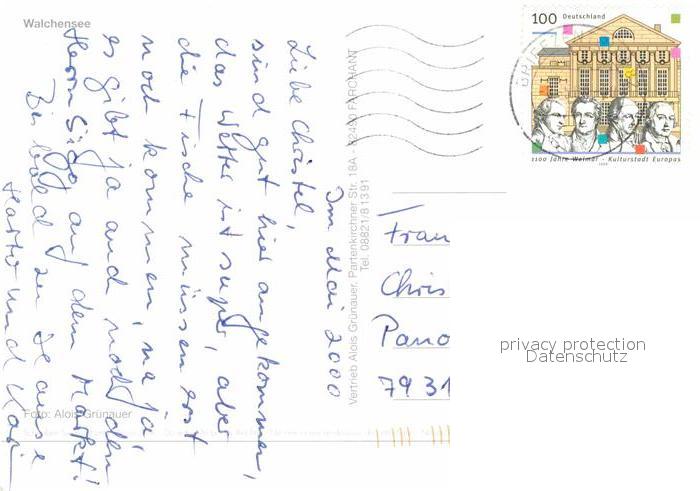 Walchensee
Im Mai 2000
Liebe Christel,
sind gut hier angekommen,
das Wetter ist super, aber
die Fische müssen erst
noch kommen, na ja,
es gibt ja auch noch den
Herrn auf dem Markt!
Bis bald zu Hause
und
Foto: Alois Grünauer
Vertrieb Alois Grünauer, Partenkirchner Str. 18A · 82490 FARCHANT
Tel. 08821/81391
100 Deutschland
1100 Jahre Weimar - Kulturstadt Europas
1999
Frau
Chris
Pano
7931
privacy protection
Datenschutz